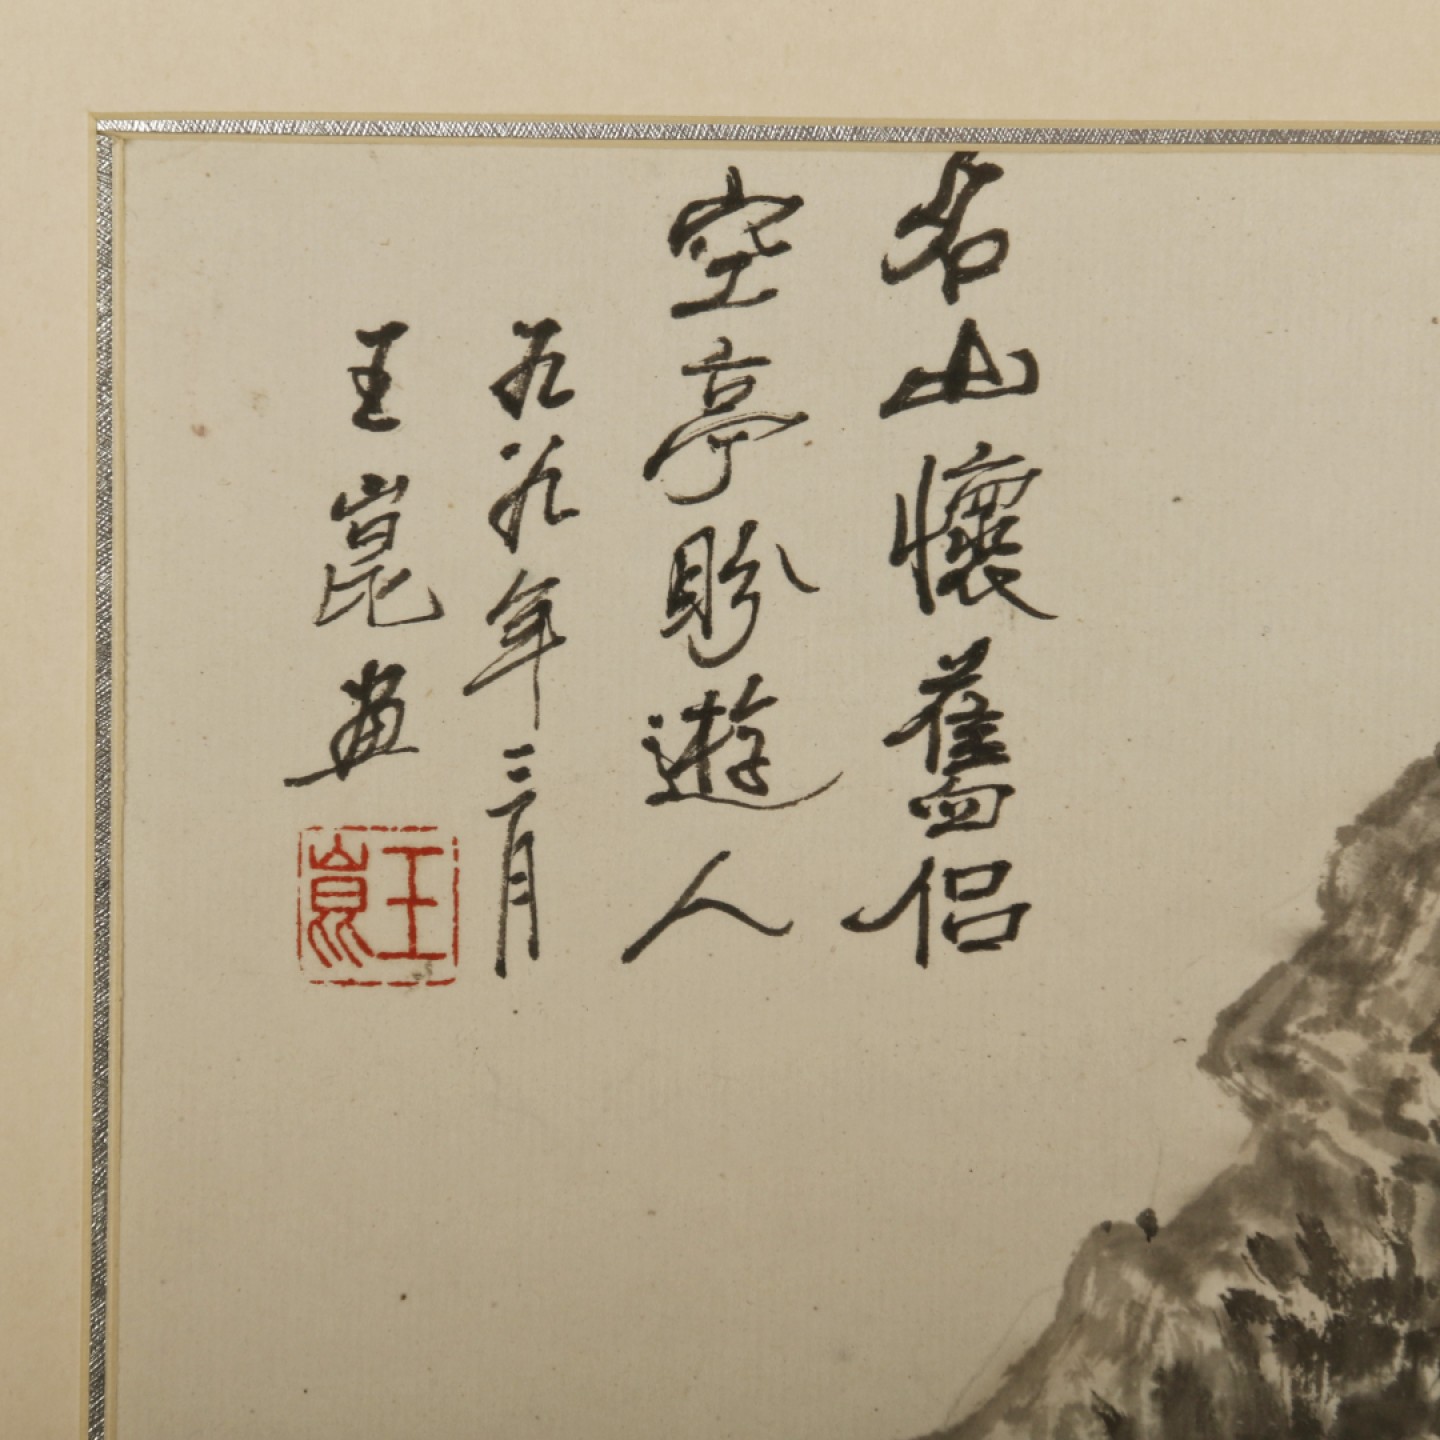 名山懷舊侶
空亭盼遊人
九九年三月
王崑畫
王崑